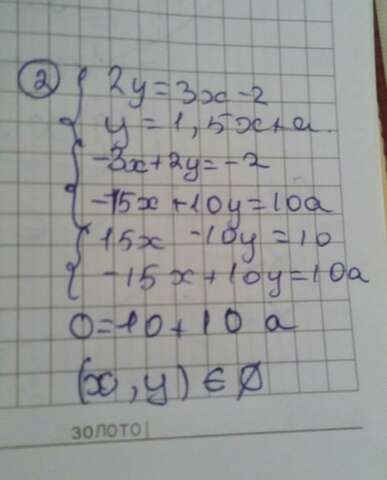 ② 2y = 3x - 2
y = 1,5x + a
-3x + 2y = -2
-15x + 10y = 10a
15x - 10y = 10
-15x + 10y = 10a
0 = 10 + 10 a
(x, y) ∈ ∅
золото